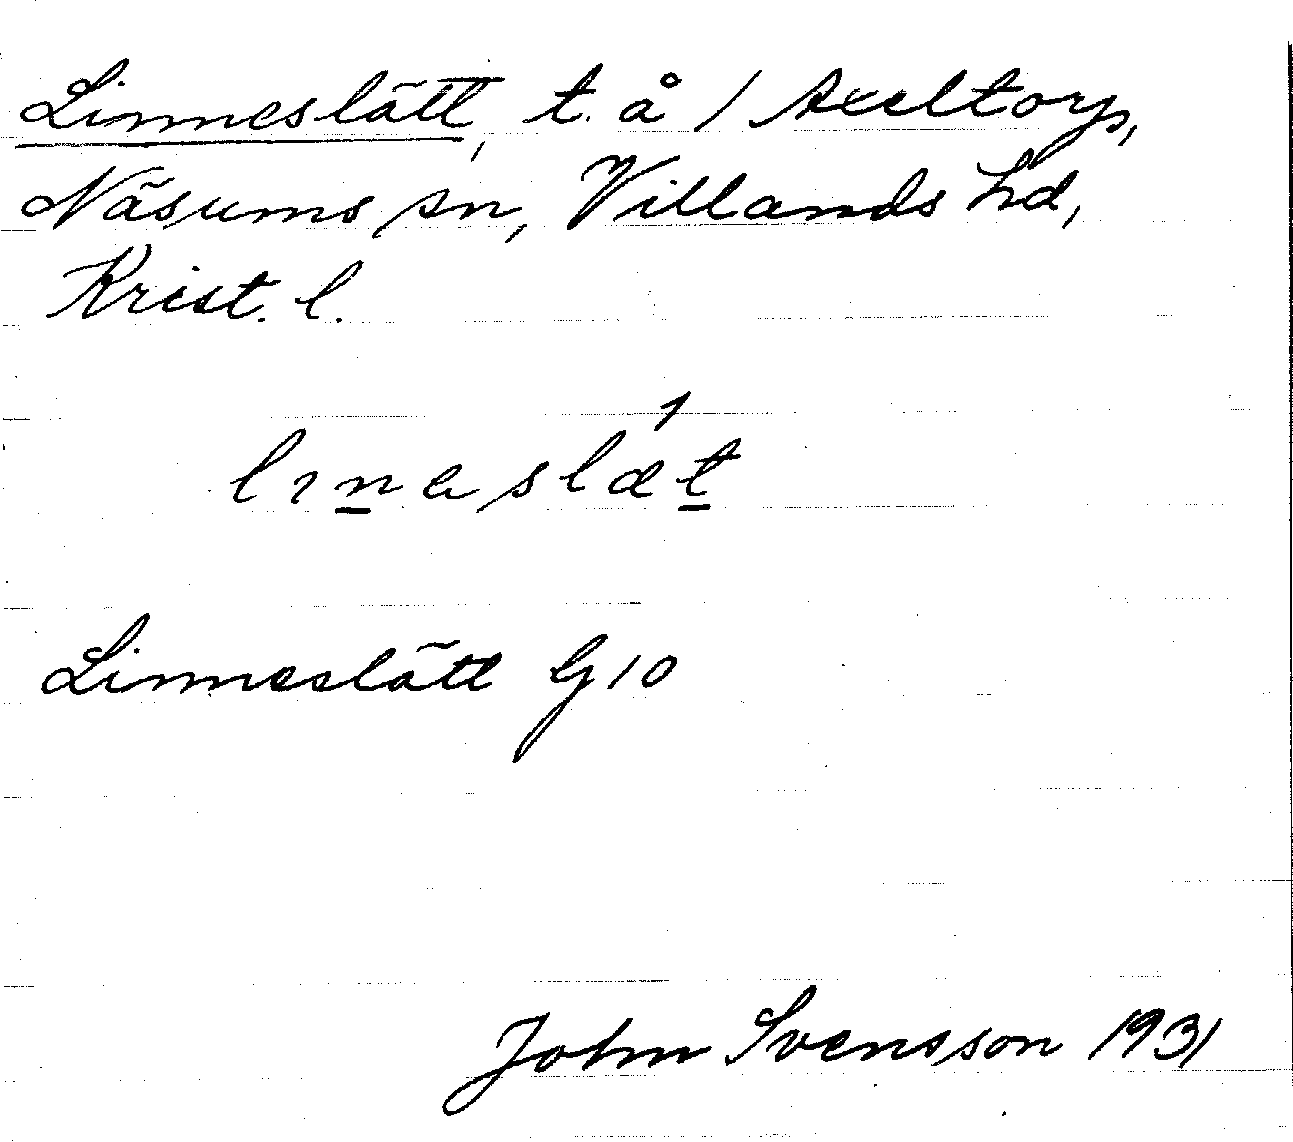 Linneslätt, t. å 1 Axeltorp,
Näsums sn, Villands hd,
Krist. l.
lınaslǽt
Linneslätt G10
John Svensson 1931